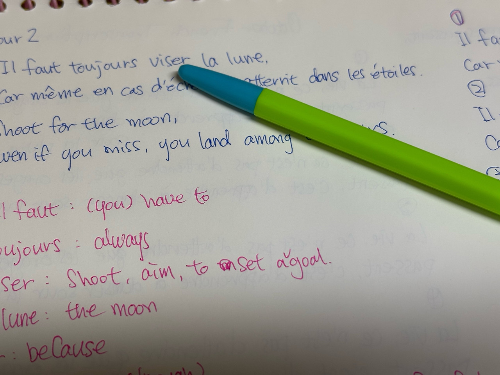 our 2
Il faut toujours viser la lune,
Car même en cas d'éc atterrit dans les étoiles.
hoot for the moon,
ven if you miss, you land among
l faut : (you) have to
oujours : always
ser : shoot, aim, to set a goal.
lune : the moon
: because
①
Il fa
Car
②
Il
Ca